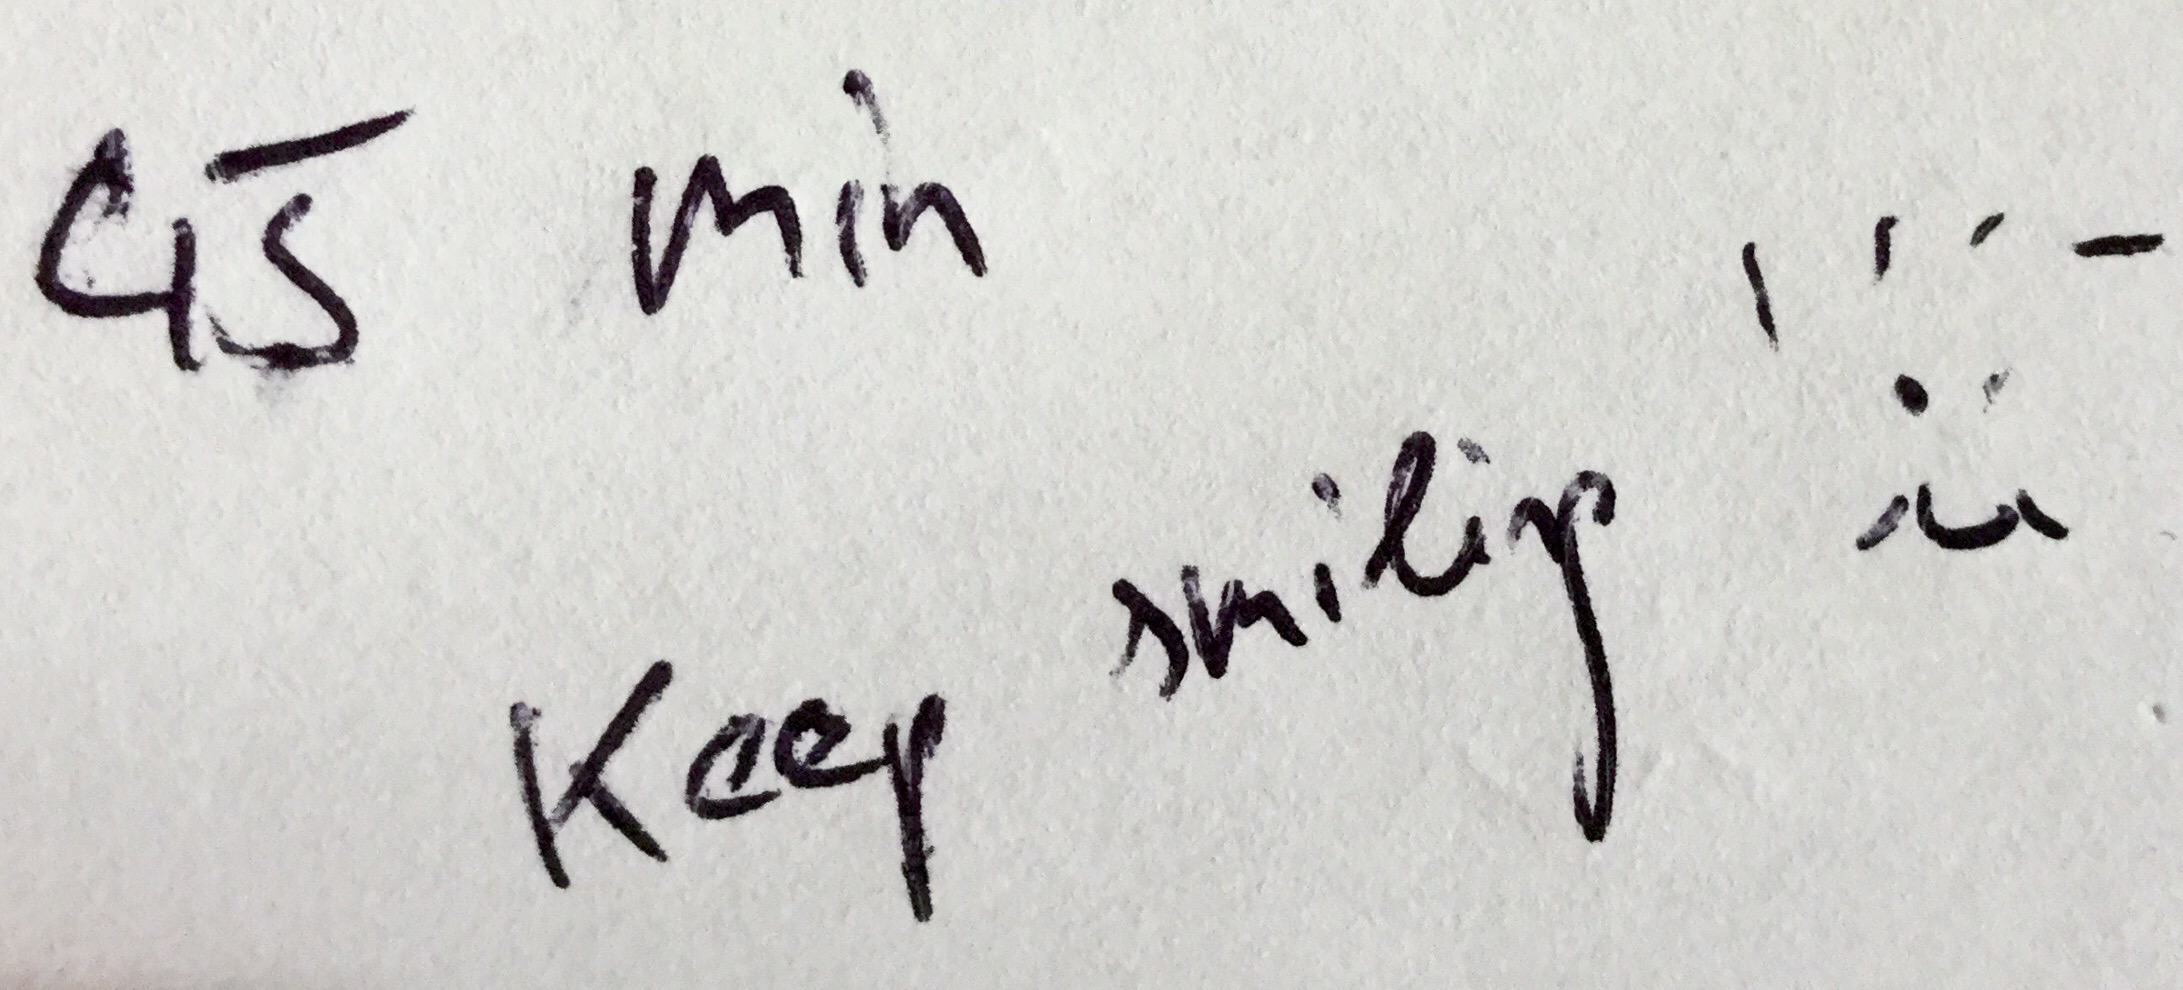 45 min
Keep smiling